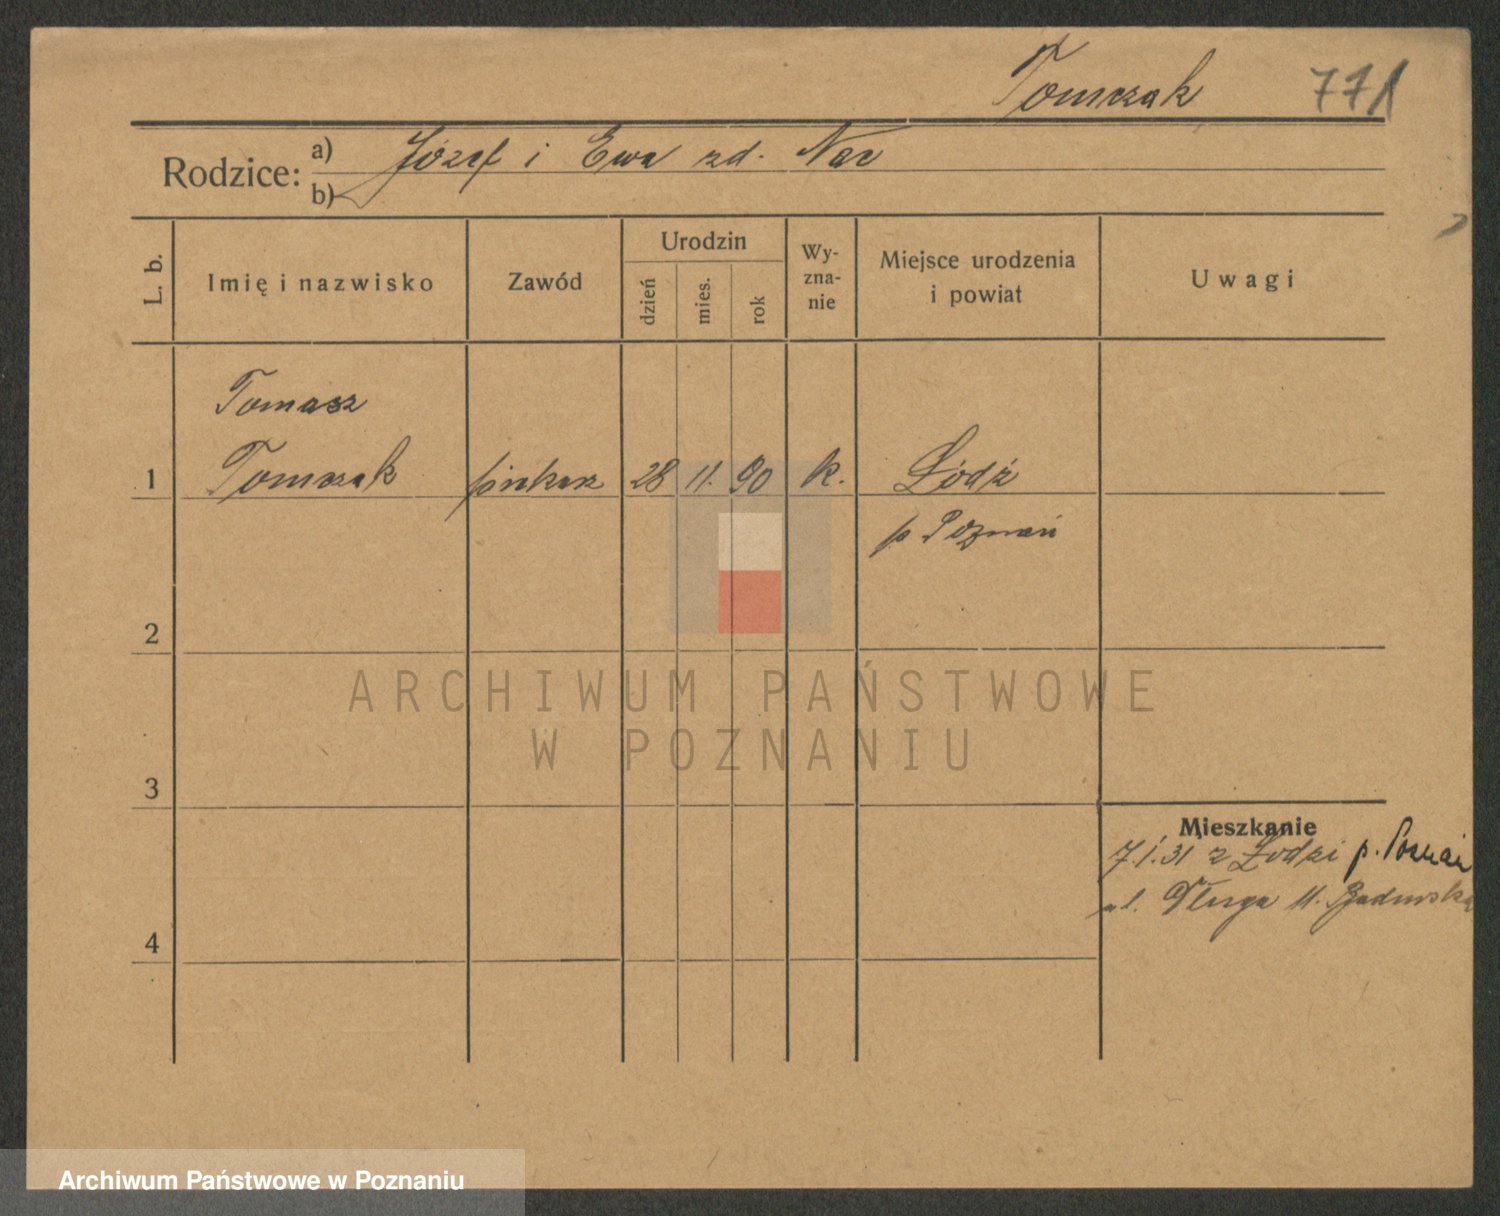 Tomczak 771
Rodzice: a) Józef i Ewa zd. Nac
b)
L. b. Imię i nazwisko Zawód Urodzin dzień mies. rok Wy-zna-nie Miejsce urodzenia i powiat Uwagi
Tomasz
1 Tomczak piekarz 28 11. 90 k. Łódź
p Poznań
2
ARCHIWUM PAŃSTWOWE
W POZNANIU
3
Mieszkanie
7.1.31 z Łodzi p. Poznań
ul. Długa 11.
4
Archiwum Państwowe w Poznaniu